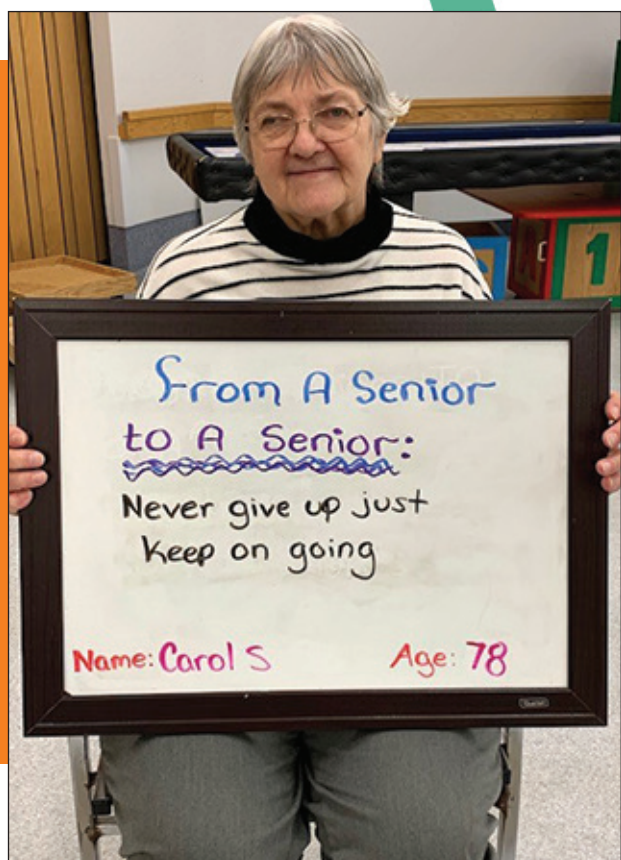 From A Senior
to A Senior:
Never give up just
keep on going
Name: Carol S
Age: 78
1